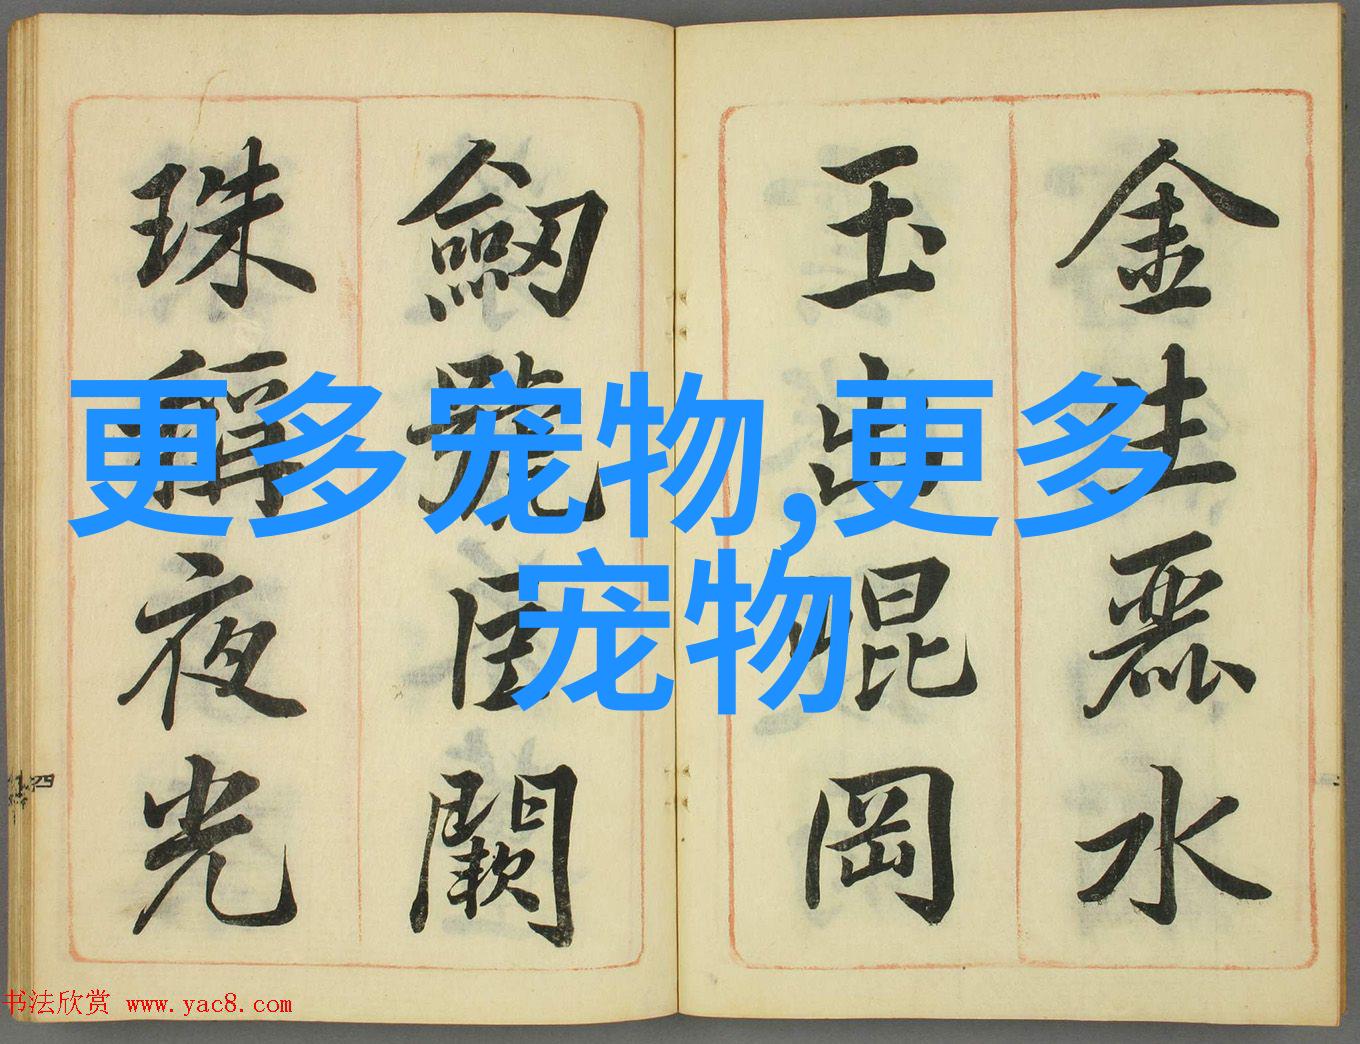 金生麗水
玉出崐岡
劒號巨闕
珠稱夜光
更多宠物,更多
宠物
四
书法欣赏 www.yac8.com